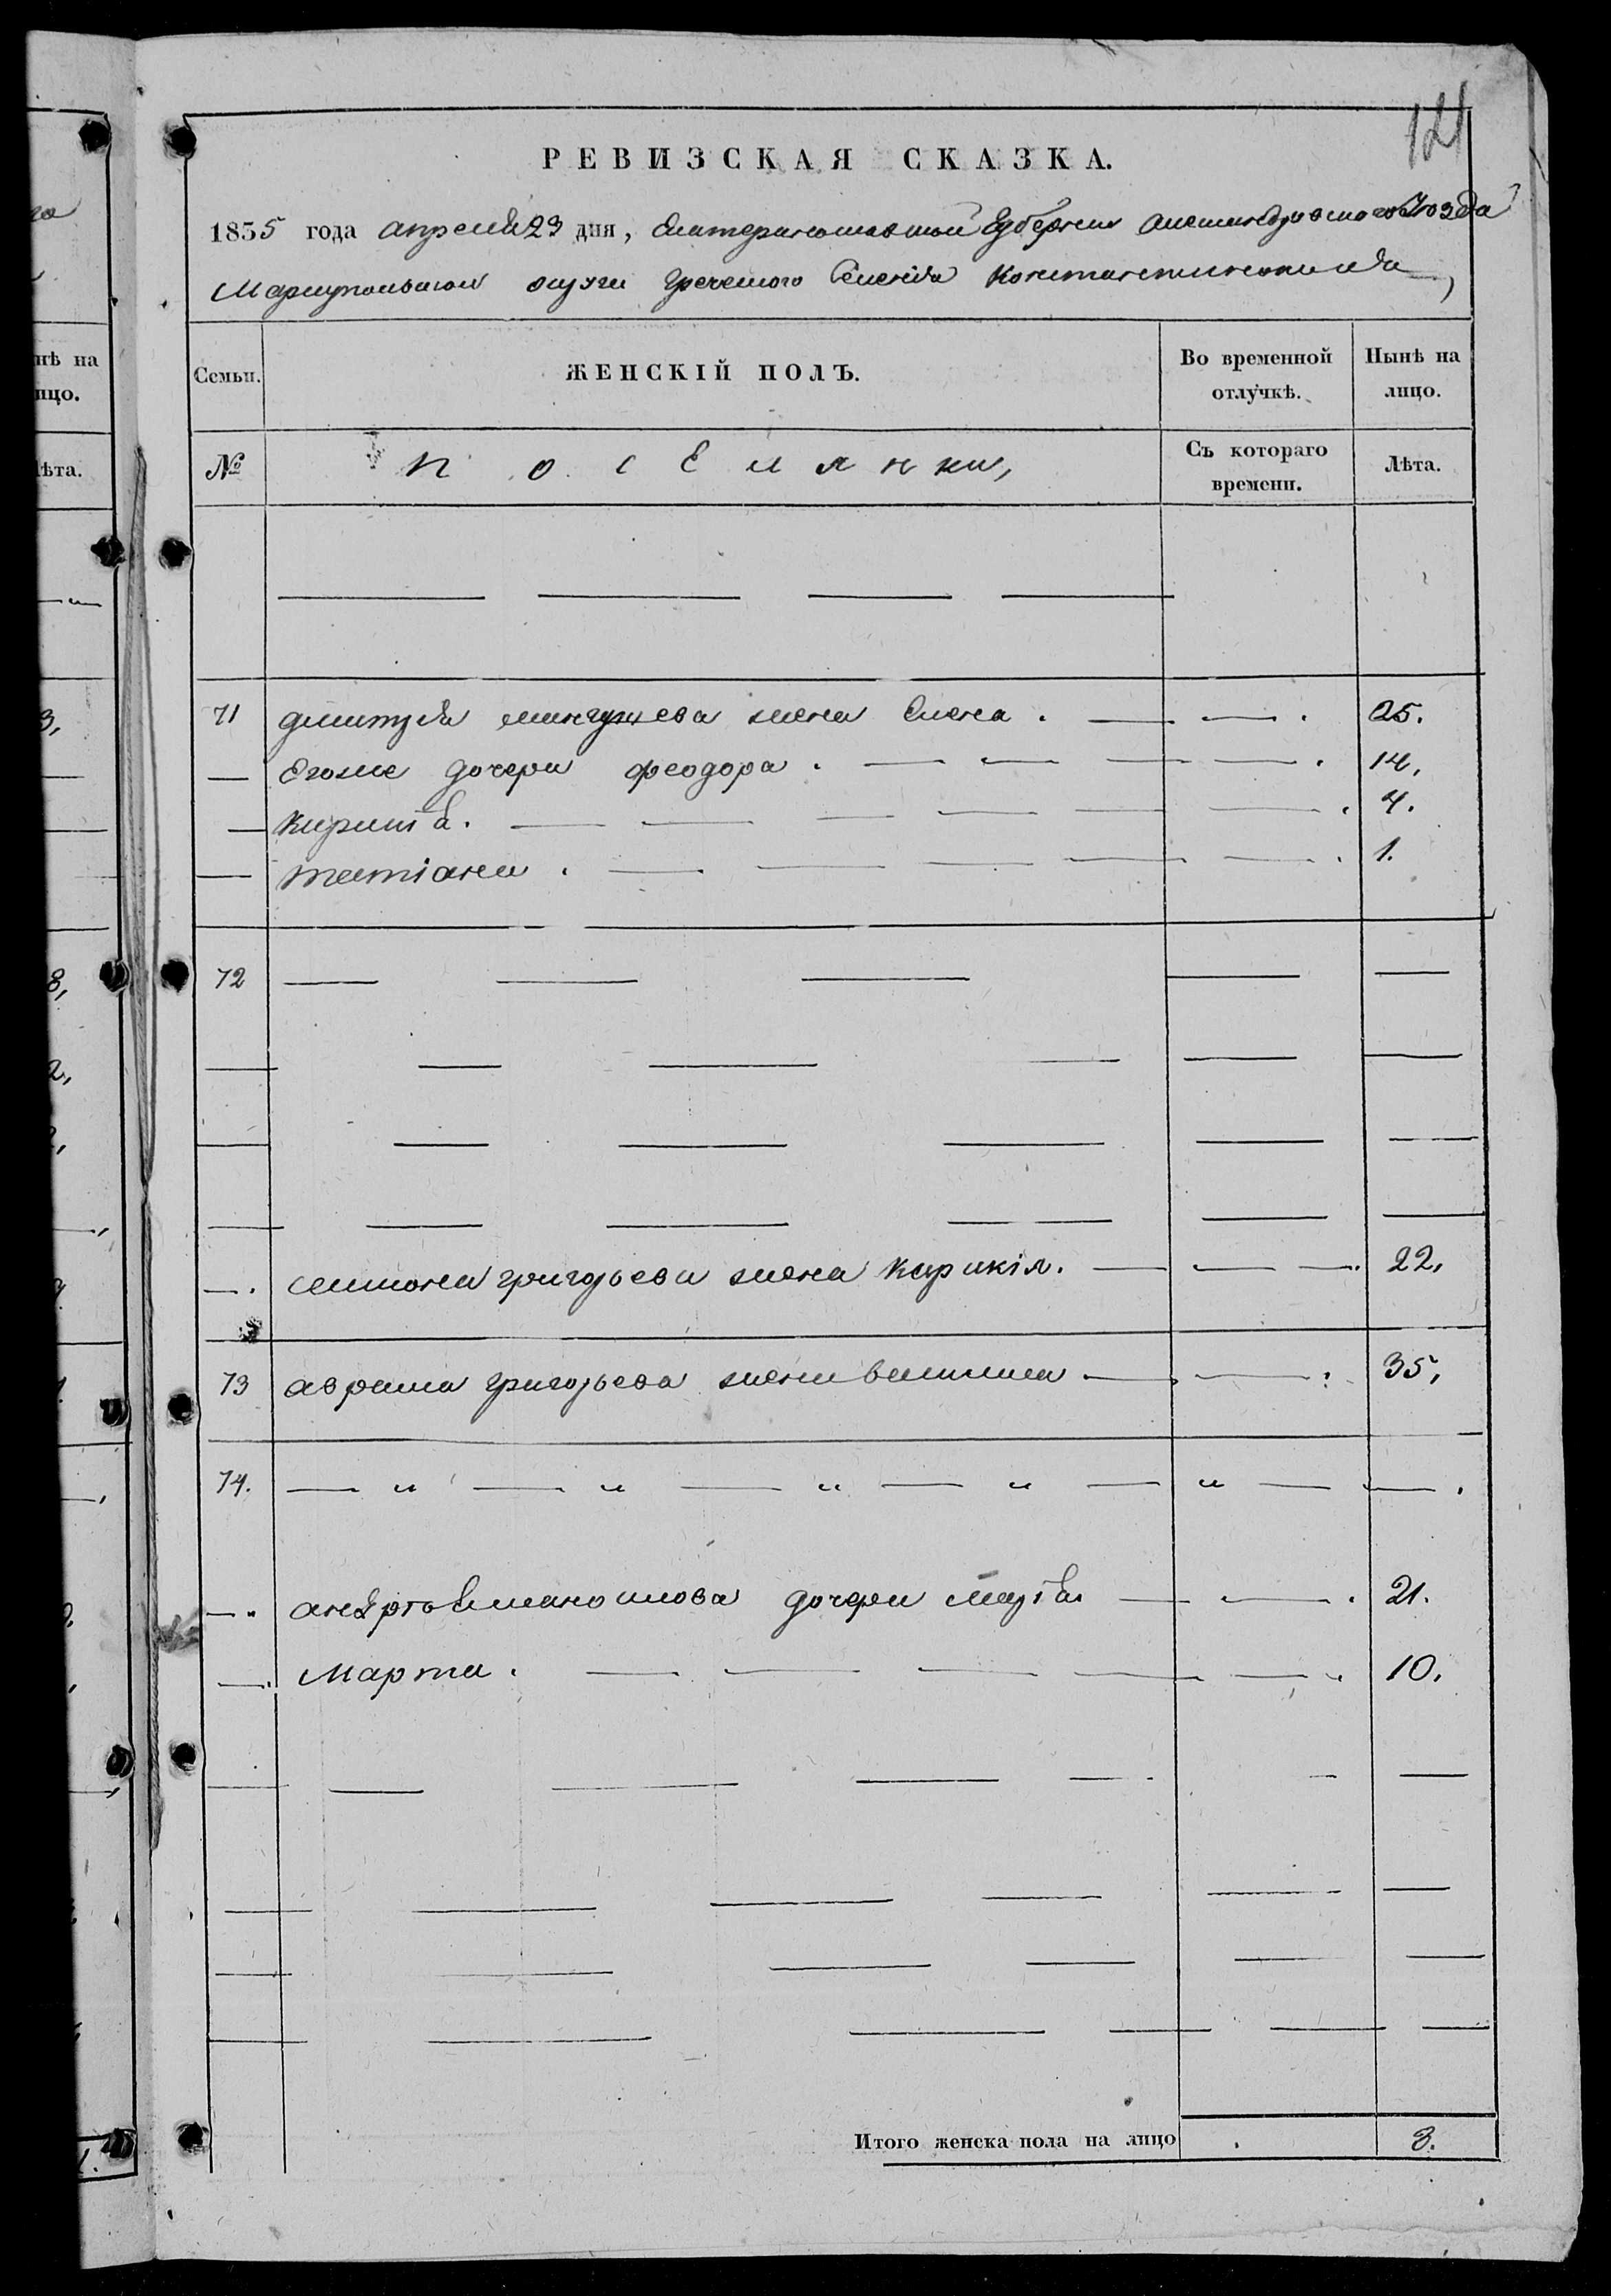 121
РЕВИЗСКАЯ СКАЗКА.
1835 года апреля 23 дня, Екатеринославской Губернии Александровского Уезда
Мариупольском округи греческого Селения Константинополя,
Семьи. ЖЕНСКІЙ ПОЛЪ. Во временной отлучкѣ. Нынѣ на лицо.
№ поселянки, Съ котораго времени. Лѣта.
71 дмитрия жена Елена. — — . 25.
— Егоже дочери феодора. — — — — . 14.
— . — — — — — . 4.
— татіана. — — — — — . 1.
72 — — — — —
— — — — — —
— — — — — —
— — — — — —
— . семиона григорьева жена Кирикія. — — — . 22.
73 аврама григорьева жена — — : 35,
74. — „ — „ — „ — „ — „ — — .
— „ дочери — — . 21.
— . Марта. — — — — — . 10.
Итого женска пола на лицо . 8.
нѣ на
ицо.
ѣта.
3,
8,
2,